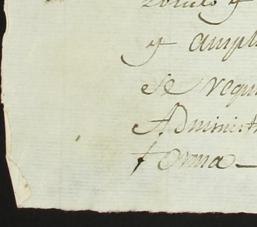 y ampl
se requ
Administ
forma